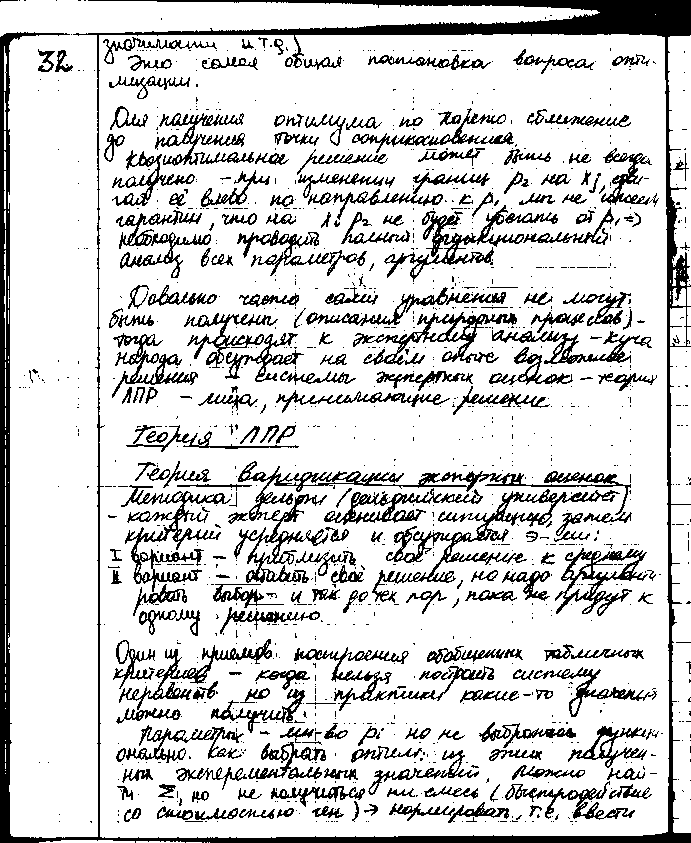 32
значимости и т.д.)
Это самая общая постановка вопроса опти-
мизации.
Для получения оптимума по Парето сближение
до получения точки соприкосновения.
Квазиоптимальное решение может быть не всегда
получено – при изменении границ p₂ на xj, сдви-
гая её влево по направлению к p₁ мы не имеем
гарантии, что на xi p₂ не будет убегать от p₁ =>
необходимо проводить полный функциональный
анализ всех параметров, аргументов
Довольно часто сами уравнения не могут
быть получены (описания природных процессов) -
тогда происходят к экспертному анализу – куча
народа обсуждает на своём опыте возможные
решения – системы экспертных оценок – теория
ЛПР – лица, принимающие решение
Теория ЛПР
Теория варификации экспертных оценок
Методика дельфи (дельфийский университет)
- каждый эксперт оценивает ситуацию, затем
критерий усредняется и обсуждается э-ми:
I вариант – приблизить своё решение к среднему
II вариант – оставить своё решение, но надо аргументи-
ровать выбор – и так до тех пор, пока не придут к
одному решению.
Один из приёмов построения обобщенных табличных
критериев – когда нельзя построить систему
неравенств но из практики какие-то значения
можно получить.
Параметры – мн-во pi но не выбранось функци-
онально. Как выбрать оптим. из этих получен-
ных эксперементальных значений. Можно най-
ти Σ, но не получиться ли смесь (быстродействие
со стоимостью ген) → нормировать, т.е. ввести